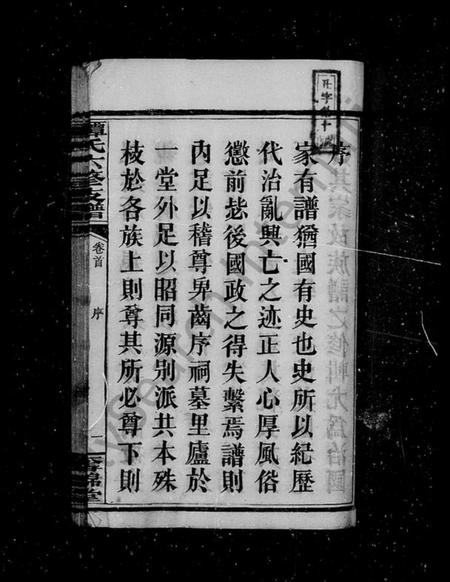 序
家有譜猶國有史也史所以紀歷
代治亂興亡之迹正人心厚風俗
懲前毖後國政之得失繫焉譜則
內足以稽尊卑齒序祠墓里廬於
一堂外足以昭同源別派共本殊
枝於各族上則尊其所必尊下則
譚氏六修支譜
卷首
序
一